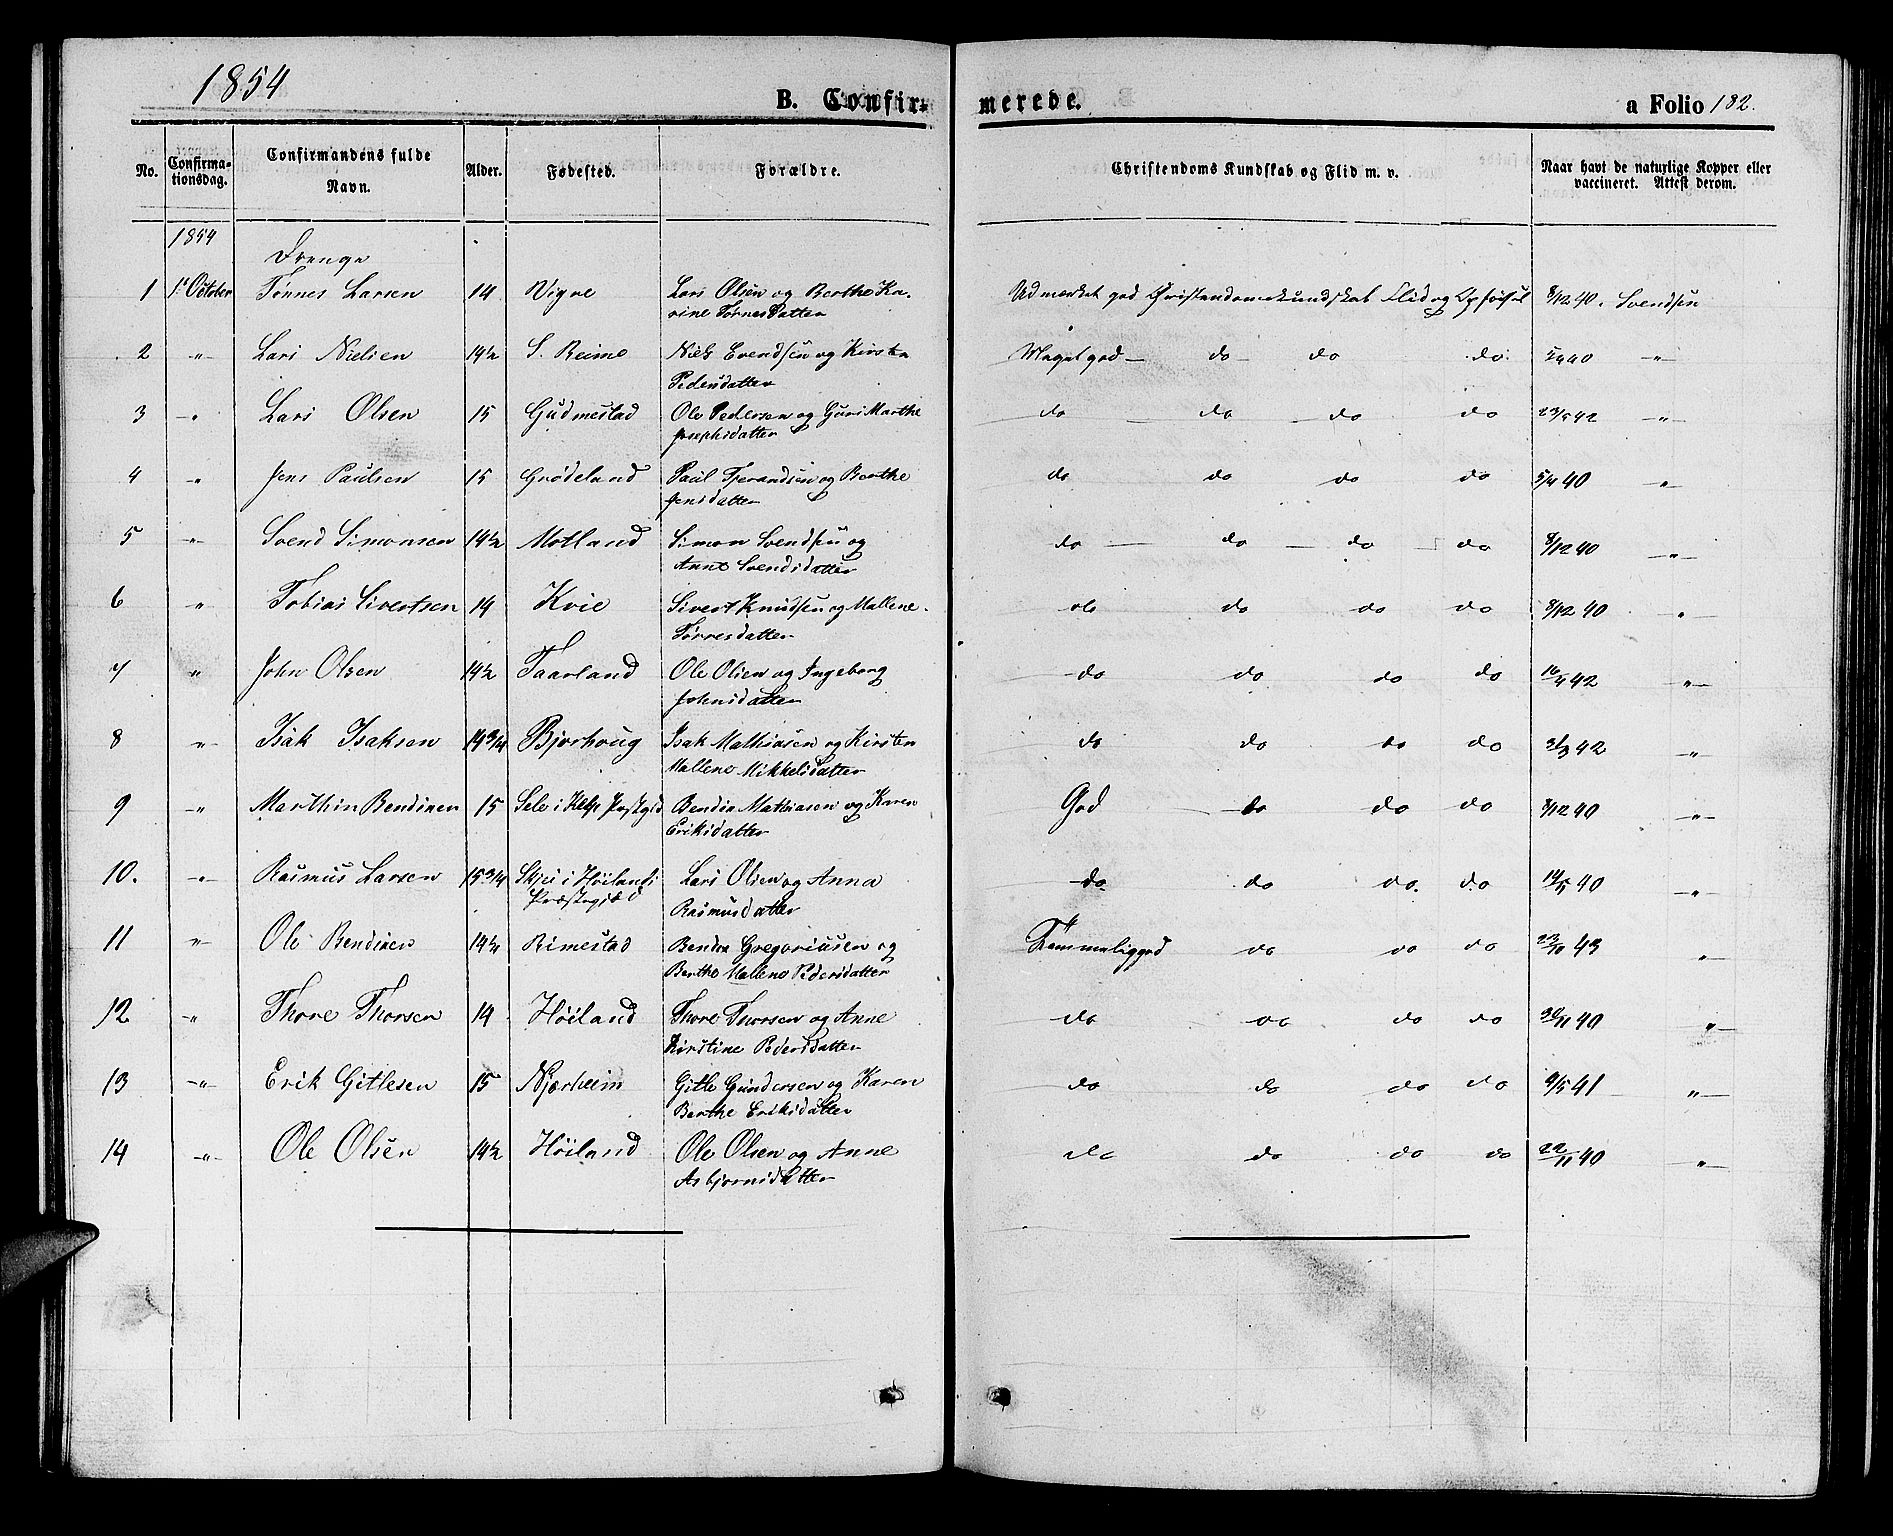 1854
B. Confir-
merede.
a Folio 182.
No. Confirma-tionsdag. Confirmandens fulde Navn. Alder. Fødested. Forældre. Christendoms Kundskab og Flid m. v. Naar havt de naturlige Kopper eller vaccineret. Attest derom.
1854
Drenge
1 1ste October Tønnes Larsen 14 Vigre Lars Olsen og Berthe Ka- Udmærket god Christendomskundskab Flid og Opførsel 8/12 40. Svendsen
rine Tørresdatter
2 " Lars Nielsen 14½ S. Reime Niels Svendsen og Kirsten Meget god do do do 40 "
Pedersdatter
3 " Lars Olsen 15 Gudmestad Ole Pedersen og Guri Marthe do do do do 23/5 42 "
Josephsdatter
4 " Jens Paulsen 15 Grødeland Paul Tjerandsen og Berthe do do do do 5/4 40 "
Jensdatter
5 " Svend Simonsen 14½ Motland Simon Svendsen og do do do do 8/12 40 "
Anne Svendsdatter
6 " Tobias Sivertsen 14 Kvie Sivert Knudsen og Mallene do do do do 8/12 40 "
Tørresdatter
7 " John Olsen 14½ Taarland Ole Olsen og Ingeborg do do do do 16/4 42 "
Johnsdatter
8 " Isak Isaksen 14 3/4 Bjorhoug Isak Mathiasen og Kirsten do do do do 31/3 42 "
Mallene Mikkelsdatter
9 " Marthin Bendixen 15 Sele i Klep Præstgjd Bendix Mathiasen og Karen God do do do 8/12 40 "
Eriksdatter
10. " Rasmus Larsen 15 3/4 Skjei i Høilands Lars Olsen og Anna do do do do 14/5 40 "
Præstegjæld Rasmusdatter
11 " Ole Bendixen 14½ Rimestad Bendix Gregoriusen og Temmelig god do do do 22/11 43 "
Berthe Mallene Pedersdatter
12 " Thore Thorsen 14 Høiland Thore Thorsen og Anne do do do do 30/11 40 "
Kirstine Pedersdatter
13 " Erik Gitlesen 15 Njærheim Gitle Gundersen og Karen do do do do 4/5 41 "
Berthe Eriksdatter
14 " Ole Olsen 14½ Høiland Ole Olsen og Anne do do do do 22/11 40 "
Asbjørnsdatter